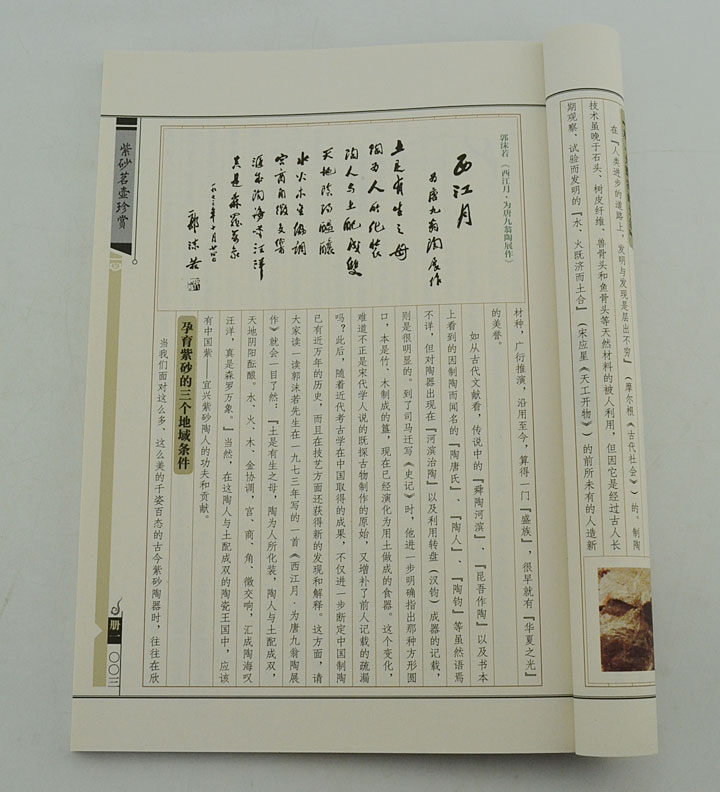 在『人类进步的道路上，发明与发现是层出不穷』（摩尔根《古代社会》）的。制陶
技术虽晚于石头、树皮纤维、兽骨头和鱼骨头等天然材料的被人利用，但因它是经过古人长
期观察、试验而发明的『水、火既济而土合』（宋应星《天工开物》）的前所未有的人造新
郭沫若《西江月·为唐九翁陶展作》
西江月
为唐九翁陶展作
土是有生之母
陶为人所化装
陶人与土配成雙
天地陰陽醖釀
水火木金協調
宫商角徵交響
滙成陶海叹汪洋
真是森羅萬象
一九七三年十月廿四日
郭沫若
材种，广衍推演，沿用至今，算得一门『盛族』，很早就有『华夏之光』
的美誉。
如从古代文献看，传说中的『舜陶河滨』、『昆吾作陶』以及书本
上看到的因制陶而闻名的『陶唐氏』、『陶人』、『陶钧』等虽然语焉
不详，但对陶器出现在『河滨治陶』以及利用转盘（汉钧）成器的记载，
则是很明显的。到了司马迁写《史记》时，他进一步明确指出那种方形圆
口，本是竹、木制成的簋，现在已经演化为用土做成的食器。这个变化，
难道不正是宋代学人说的既探古物制作的原始，又增补了前人记载的疏漏
吗？此后，随着近代考古学在中国取得的成果，不仅进一步断定中国制陶
已有近万年的历史，而且在技艺方面还获得新的发现和解释。这方面，请
大家读一读郭沫若先生在一九七三年写的一首《西江月·为唐九翁陶展
作》就会一目了然：『土是有生之母，陶为人所化装，陶人与土配成双，
天地阴阳酝酿。水、火、木、金协调，宫、商、角、徵交响，汇成陶海叹
汪洋，真是森罗万象。』当然，在这陶人与土配成双的陶瓷王国中，应该
有中国紫——宜兴紫砂陶人的功夫和贡献。
孕育紫砂的三个地域条件
当我们面对这么多、这么美的千姿百态的古今紫砂陶器时，往往在欣
紫砂茗壶珍赏
册一
〇〇三